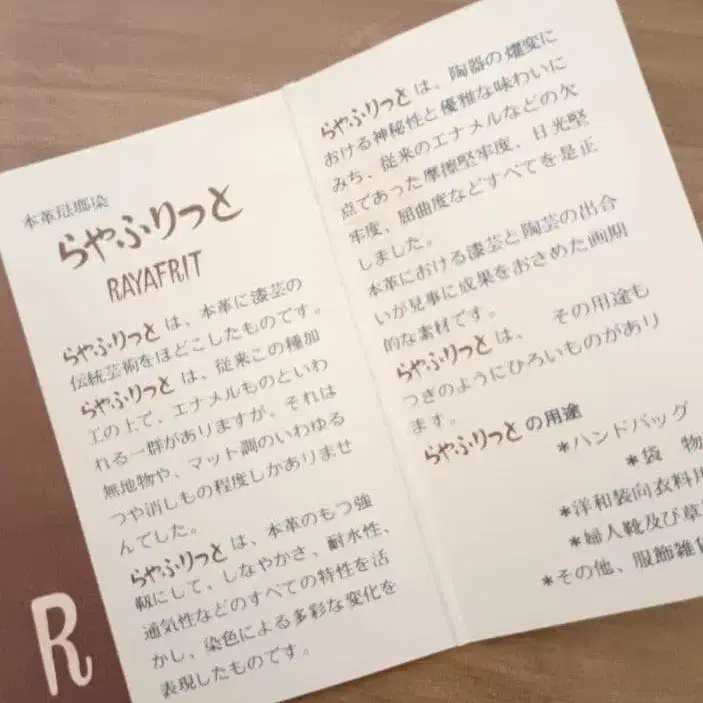 本革琺瑯染
らやふりっと
RAYAFRIT
らやふりっとは、本革に漆芸の
伝統芸術をほどこしたものです。
らやふりっとは、従来この種加
工の上で、エナメルものといわ
れる一群がありますが、それは
無地物や、マット調のいわゆる
つや消しもの程度しかありませ
んでした。
らやふりっとは、本革のもつ強
靱にして、しなやかさ、耐水性、
通気性などのすべての特性を活
かし、染色による多彩な変化を
表現したものです。
らやふりっとは、陶器の燿変に
おける神秘性と優雅な味わいに
みち、従来のエナメルなどの欠
点であった摩擦堅牢度、日光堅
牢度、屈曲度などすべてを是正
しました。
本革における漆芸と陶芸の出合
いが見事に成果をおさめた画期
的な素材です。
らやふりっとは、 その用途も
つぎのようにひろいものがあり
ます。
らやふりっとの用途
＊ハンドバッグ
＊袋 物
＊洋和装向衣料用
＊婦人靴及び草
＊その他、服飾雑貨
R